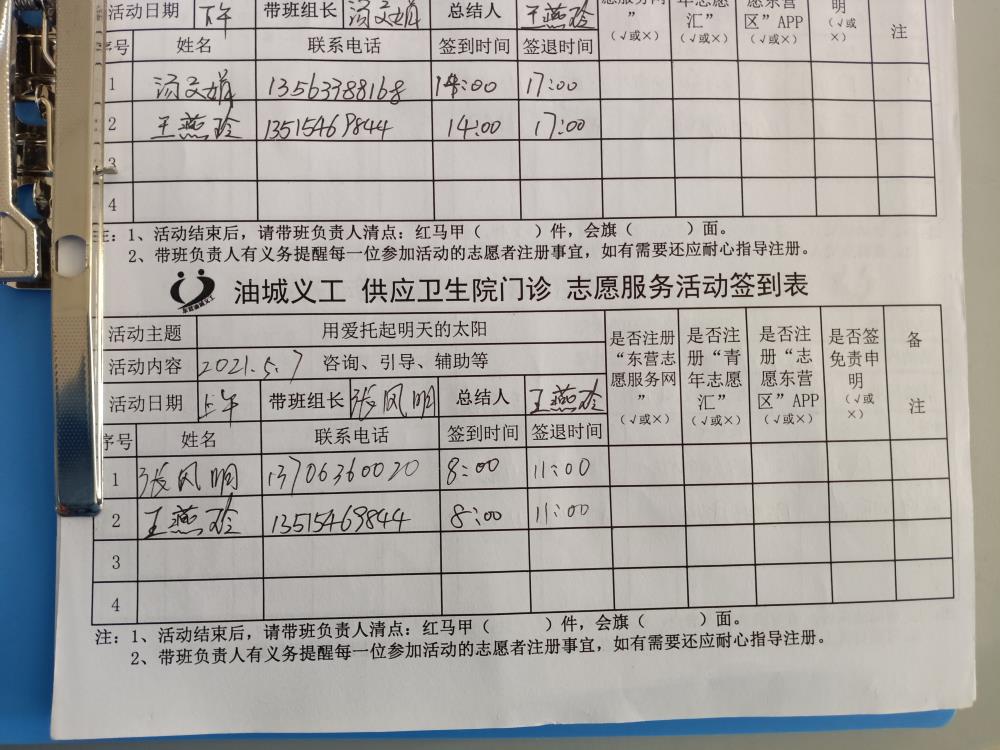 活动日期 下午 带班组长 汤文娟 总结人 王燕玲
愿服务网” 年志愿汇” 愿东营区”APP 明 注
(√或×) (√或×) (√或×) (√或×)
序号 姓名 联系电话 签到时间 签退时间
1 汤文娟 13563788168 14:00 17:00
2 王燕玲 13515469844 14:00 17:00
3
4
注：1、活动结束后，请带班负责人清点：红马甲（ ）件，会旗（ ）面。
2、带班负责人有义务提醒每一位参加活动的志愿者注册事宜，如有需要还应耐心指导注册。
油城义工 供应卫生院门诊 志愿服务活动签到表
活动主题 用爱托起明天的太阳
活动内容 2021.5.7 咨询、引导、辅助等
活动日期 上午 带班组长 张凤明 总结人 王燕玲
是否注册“东营志愿服务网”(√或×) 是否注册“青年志愿汇”(√或×) 是否注册“志愿东营区”APP(√或×) 是否签免责申明(√或×) 备注
序号 姓名 联系电话 签到时间 签退时间
1 张凤明 13706360020 8:00 11:00
2 王燕玲 13515469844 8:00 11:00
3
4
注：1、活动结束后，请带班负责人清点：红马甲（ ）件，会旗（ ）面。
2、带班负责人有义务提醒每一位参加活动的志愿者注册事宜，如有需要还应耐心指导注册。